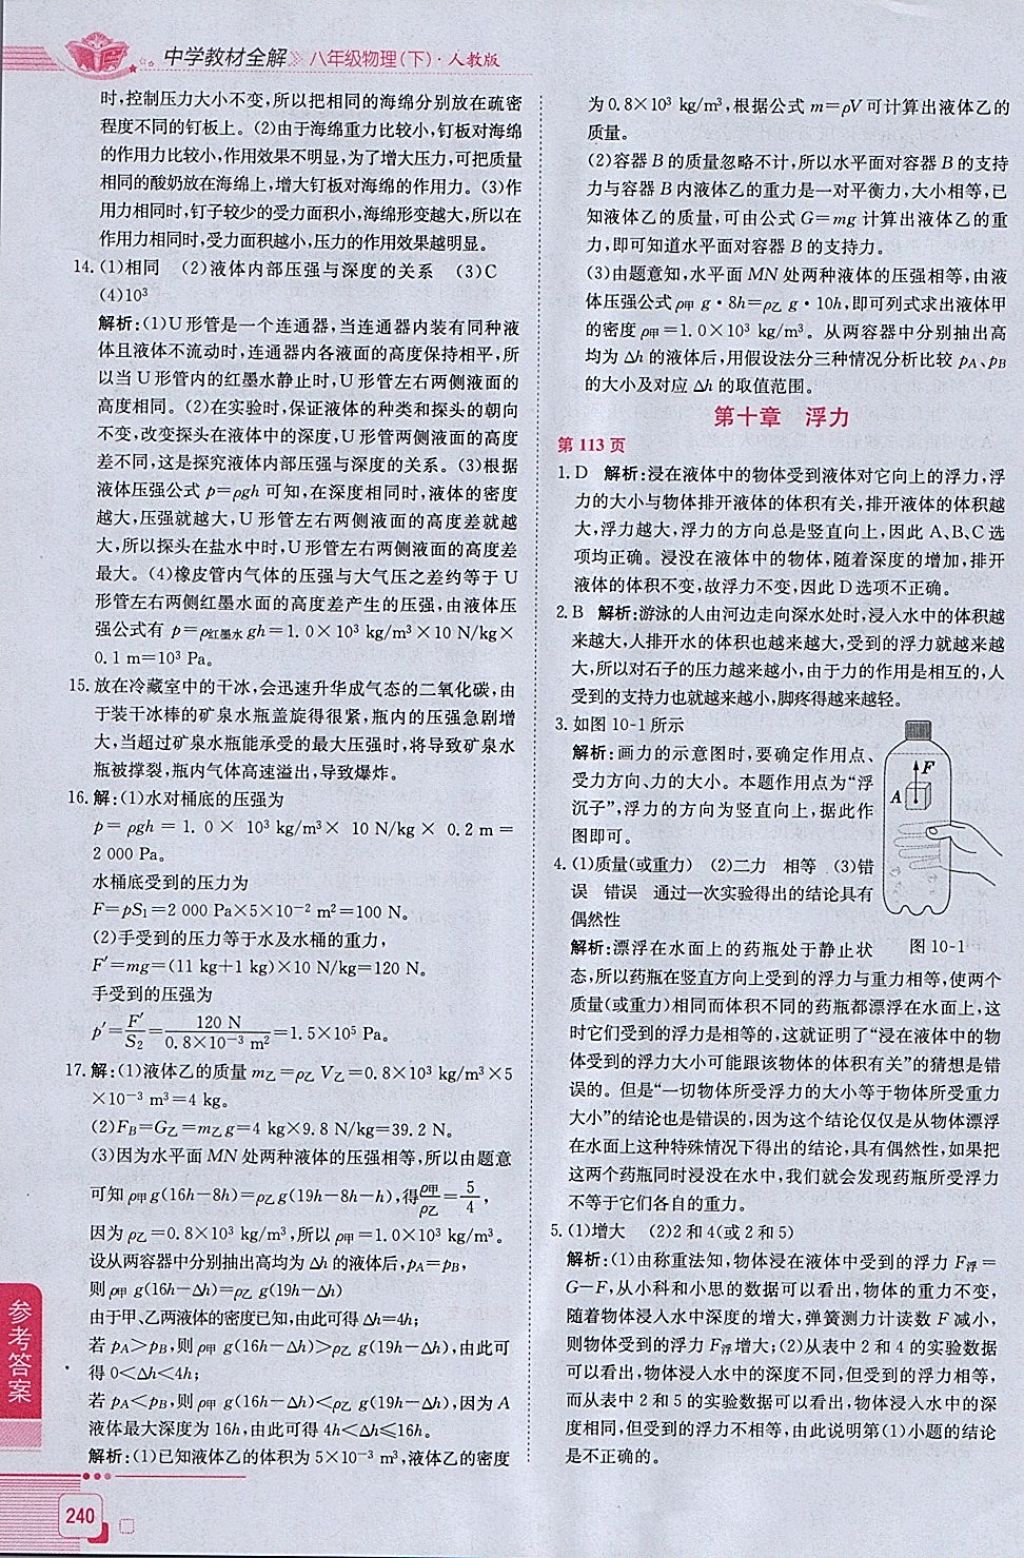 中学教材全解 八年级物理(下)·人教版
时,控制压力大小不变,所以把相同的海绵分别放在疏密
程度不同的钉板上。(2)由于海绵重力比较小,钉板对海绵
的作用力比较小,作用效果不明显,为了增大压力,可把质量
相同的酸奶放在海绵上,增大钉板对海绵的作用力。(3)作
用力相同时,钉子较少的受力面积小,海绵形变越大,所以在
作用力相同时,受力面积越小,压力的作用效果越明显。
14.(1)相同 (2)液体内部压强与深度的关系 (3)C
(4)10³
解析:(1)U形管是一个连通器,当连通器内装有同种液
体且液体不流动时,连通器内各液面的高度保持相平,所
以当U形管内的红墨水静止时,U形管左右两侧液面的
高度相同。(2)在实验时,保证液体的种类和探头的朝向
不变,改变探头在液体中的深度,U形管两侧液面的高度
差不同,这是探究液体内部压强与深度的关系。(3)根据
液体压强公式p=ρgh可知,在深度相同时,液体的密度
越大,压强就越大,U形管左右两侧液面的高度差就越
大,所以探头在盐水中时,U形管左右两侧液面的高度差
最大。(4)橡皮管内气体的压强与大气压之差约等于U
形管左右两侧红墨水面的高度差产生的压强,由液体压
强公式有p=ρ红墨水gh=1.0×10³ kg/m³×10 N/kg×
0.1 m=10³ Pa。
15.放在冷藏室中的干冰,会迅速升华成气态的二氧化碳,由
于装干冰棒的矿泉水瓶盖旋得很紧,瓶内的压强急剧增
大,当超过矿泉水瓶能承受的最大压强时,将导致矿泉水
瓶被撑裂,瓶内气体高速溢出,导致爆炸。
16.解:(1)水对桶底的压强为
p=ρgh=1.0×10³ kg/m³×10 N/kg×0.2 m=
2 000 Pa。
水桶底受到的压力为
F=pS₁=2 000 Pa×5×10⁻² m²=100 N。
(2)手受到的压力等于水及水桶的重力,
F′=mg=(11 kg+1 kg)×10 N/kg=120 N。
手受到的压强为
p′=F′/S₂=120 N/0.8×10⁻³ m²=1.5×10⁵ Pa。
17.解:(1)液体乙的质量m乙=ρ乙V乙=0.8×10³ kg/m³×5
×10⁻³ m³=4 kg。
(2)F_B=G乙=m乙g=4 kg×9.8 N/kg=39.2 N。
(3)因为水平面MN处两种液体的压强相等,所以由题意
可知ρ甲g(16h-8h)=ρ乙g(19h-8h-h),得ρ甲/ρ乙=5/4,
因为ρ乙=0.8×10³ kg/m³,所以ρ甲=1.0×10³ kg/m³。
设从两容器中分别抽出高均为Δh的液体后,p_A=p_B,
则ρ甲g(16h-Δh)=ρ乙g(19h-Δh)
由于甲、乙两液体的密度已知,由此可得Δh=4h;
若p_A>p_B,则ρ甲g(16h-Δh)>ρ乙g(19h-Δh),由此可
得0<Δh<4h;
若p_A<p_B,则ρ甲g(16h-Δh)<ρ乙g(19h-Δh),因为A
液体最大深度为16h,由此可得4h<Δh≤16h。
解析:(1)已知液体乙的体积为5×10⁻³ m³,液体乙的密度
为0.8×10³ kg/m³,根据公式m=ρV可计算出液体乙的
质量。
(2)容器B的质量忽略不计,所以水平面对容器B的支持
力与容器B内液体乙的重力是一对平衡力,大小相等,已
知液体乙的质量,可由公式G=mg计算出液体乙的重
力,即可知道水平面对容器B的支持力。
(3)由题意知,水平面MN处两种液体的压强相等,由液
体压强公式ρ甲g·8h=ρ乙g·10h,即可列式求出液体甲
的密度ρ甲=1.0×10³ kg/m³。从两容器中分别抽出高
均为Δh的液体后,用假设法分三种情况分析比较p_A、p_B
的大小及对应Δh的取值范围。
第十章 浮力
第113页
1.D 解析:浸在液体中的物体受到液体对它向上的浮力,浮
力的大小与物体排开液体的体积有关,排开液体的体积越
大,浮力越大,浮力的方向总是竖直向上,因此A、B、C选
项均正确。浸没在液体中的物体,随着深度的增加,排开
液体的体积不变,故浮力不变,因此D选项不正确。
2.B 解析:游泳的人由河边走向深水处时,浸入水中的体积越
来越大,人排开水的体积也越来越大,受到的浮力就越来越
大,所以对石子的压力越来越小,由于力的作用是相互的,人
受到的支持力也就越来越小,脚疼得越来越轻。
3.如图10-1所示
解析:画力的示意图时,要确定作用点、
受力方向、力的大小。本题作用点为“浮
沉子”,浮力的方向为竖直向上,据此作
图即可。
F
A
图10-1
4.(1)质量(或重力) (2)二力 相等 (3)错
误 错误 通过一次实验得出的结论具有
偶然性
解析:漂浮在水面上的药瓶处于静止状
态,所以药瓶在竖直方向上受到的浮力与重力相等,使两个
质量(或重力)相同而体积不同的药瓶都漂浮在水面上,这
时它们受到的浮力是相等的,这就证明了“浸在液体中的物
体受到的浮力大小可能跟该物体的体积有关”的猜想是错
误的。但是“一切物体所受浮力的大小等于物体所受重力
大小”的结论也是错误的,因为这个结论仅仅是从物体漂浮
在水面上这种特殊情况下得出的结论,具有偶然性,如果把
这两个药瓶同时浸没在水中,我们就会发现药瓶所受浮力
不等于它们各自的重力。
5.(1)增大 (2)2和4(或2和5)
解析:(1)由称重法知,物体浸在液体中受到的浮力F浮=
G-F,从小科和小思的数据可以看出,物体的重力不变,
随着物体浸入水中深度的增大,弹簧测力计读数F减小,
则物体受到的浮力F浮增大;(2)从表中2和4的实验数据
可以看出,物体浸入水中的深度不同,但受到的浮力相等,
而从表中2和5的实验数据可以看出,物体浸入水中的深
度相同,但受到的浮力不相等,由此说明第(1)小题的结论
是不正确的。
参考答案
240